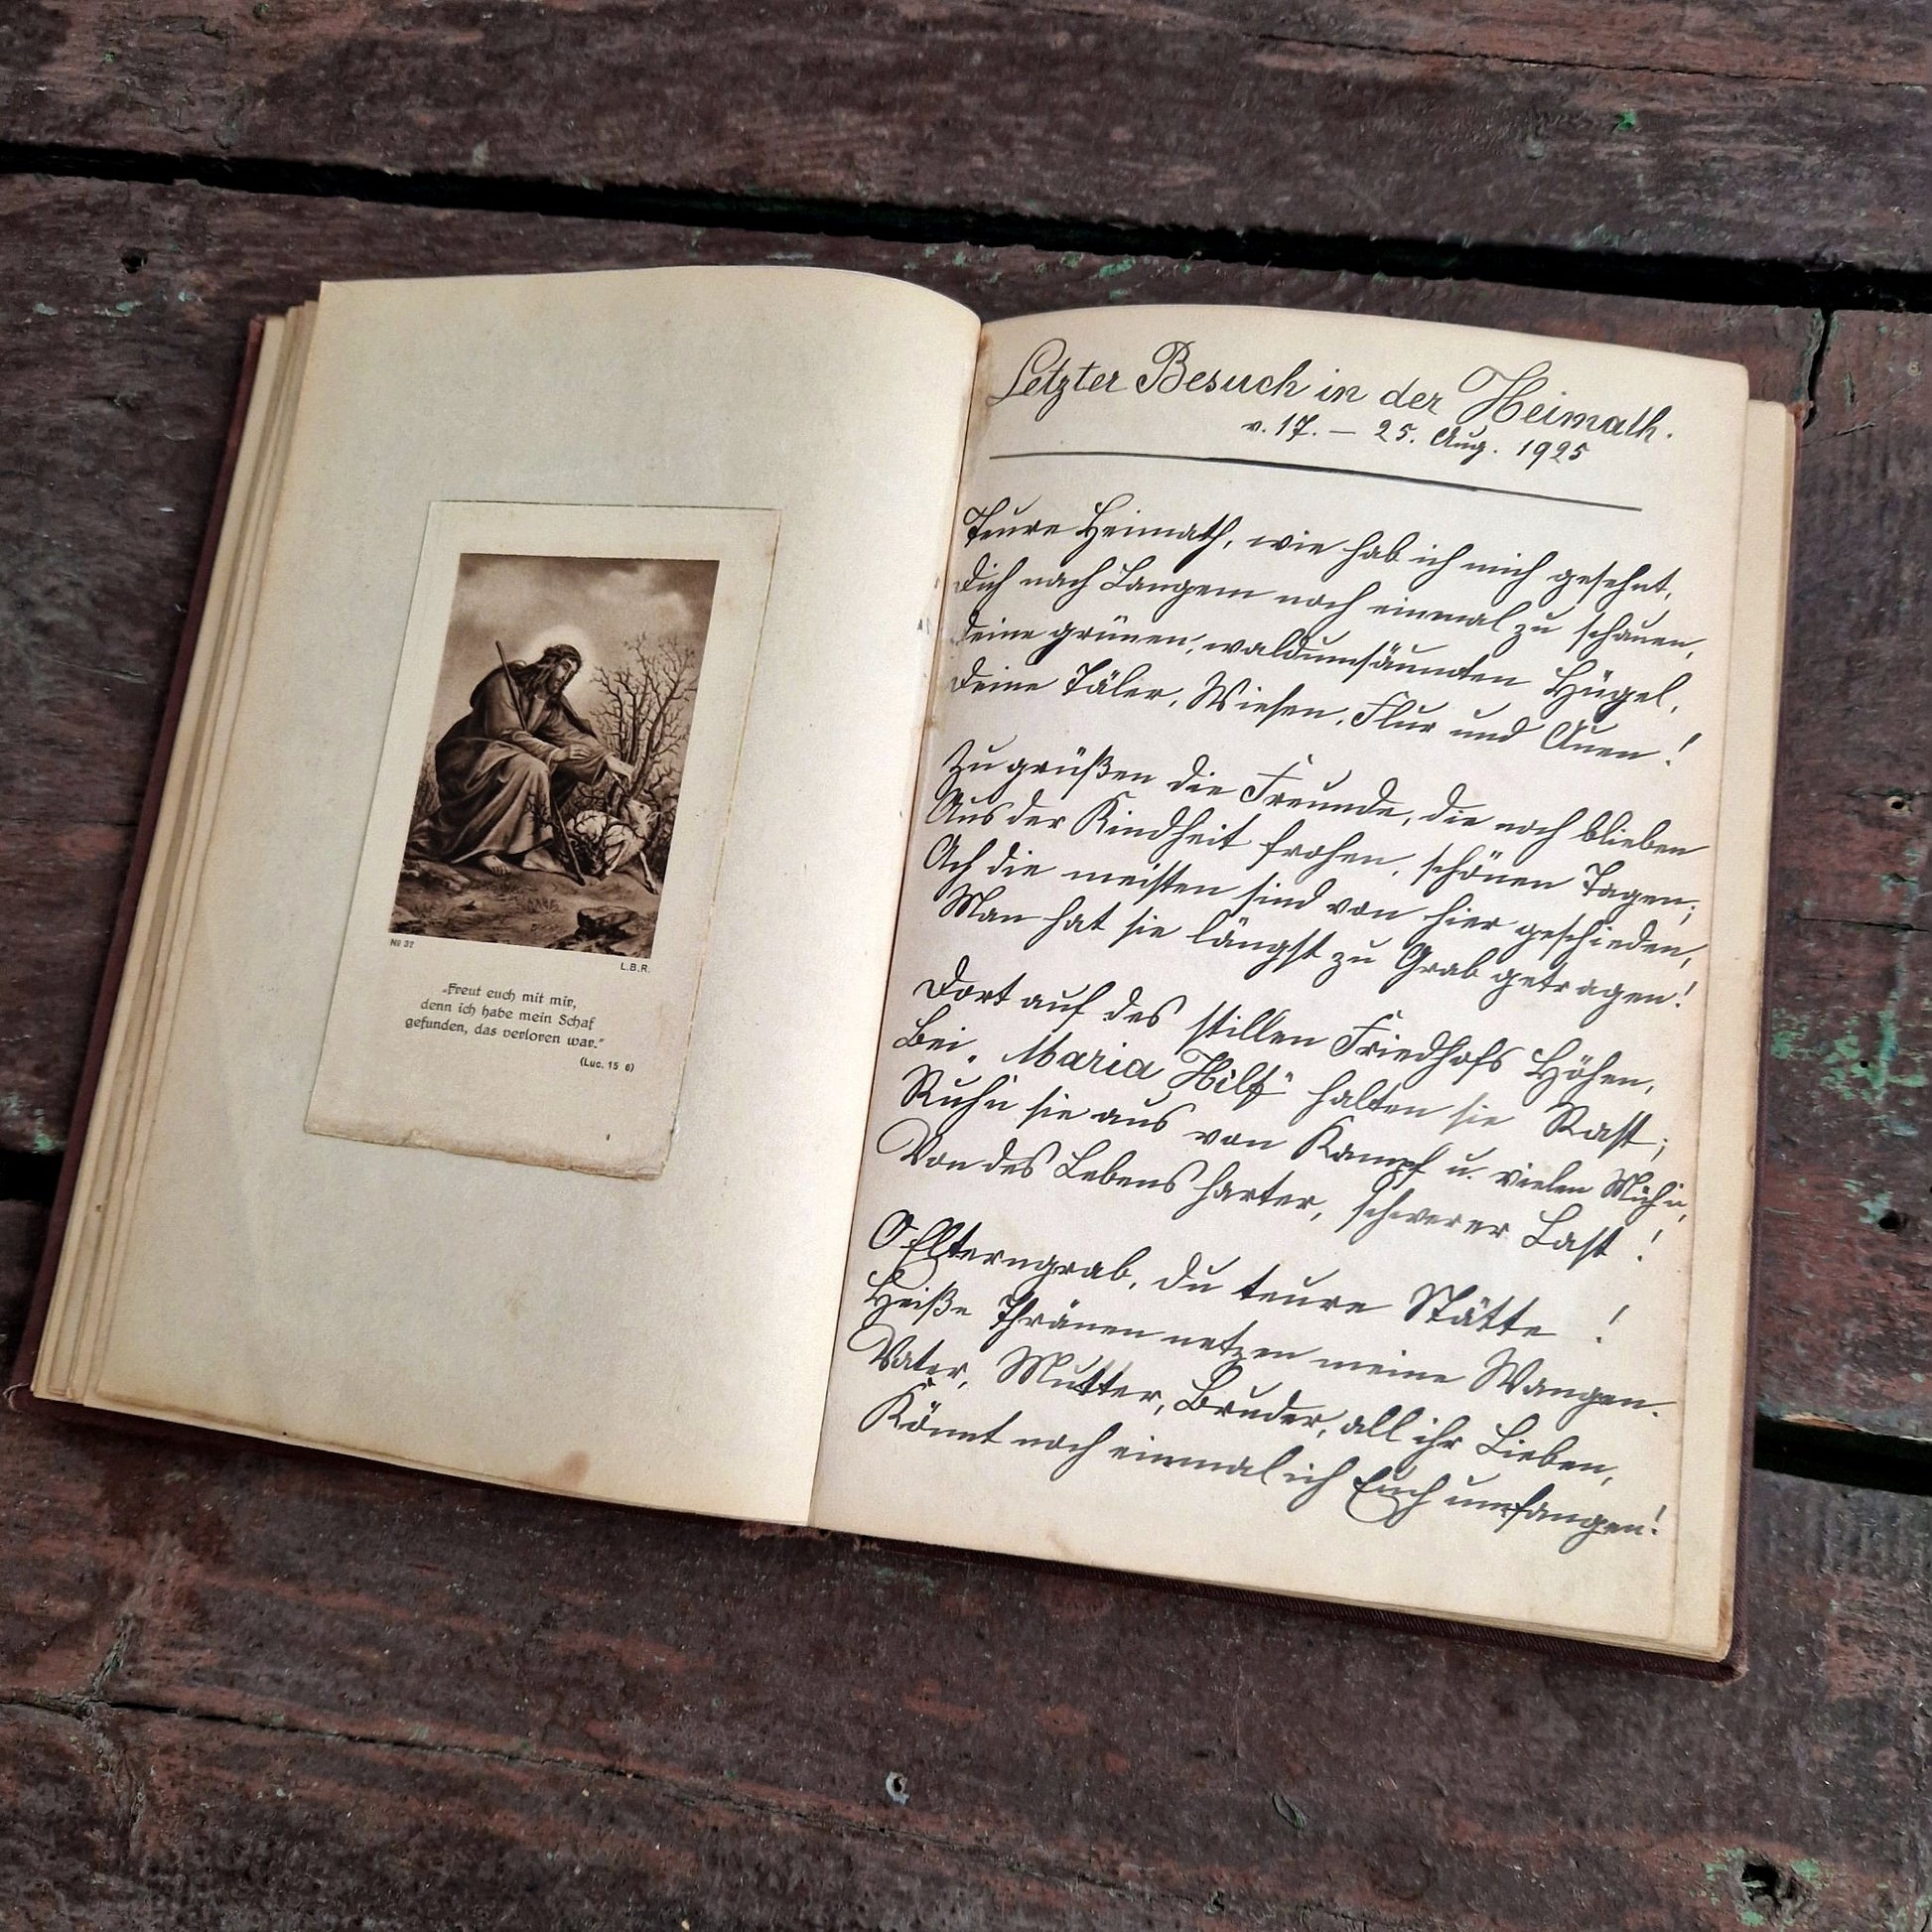 No 32
L.B.R.
„Freut euch mit mir,
denn ich habe mein Schaf
gefunden, das verloren war."
(Luc. 15 6)
Letzter Besuch in der Heimath.
v. 17. – 25. Aug. 1925
Teure Heimath, wie hab ich mich gesehnt,
Dich nach Langem noch einmal zu schauen,
Deine grünen, waldumsäumten Hügel,
Deine Täler, Wiesen, Flur und Auen!
Zu grüßen die Freunde, die noch blieben
Aus der Kindheit frohen, schönen Tagen;
Ach die meisten sind von hier geschieden,
Man hat sie längst zu Grab getragen!
Dort auf des stillen Friedhofs Höhen,
Bei „Maria Hilf" halten sie Rast;
Ruh'n sie aus von Kampf u. vielen Müh'n,
Von des Lebens harter, schwerer Last!
O Elterngrab, du teure Stätte!
Heiße Thränen netzen meine Wangen.
Vater, Mutter, Bruder, all ihr Lieben,
Könnt noch einmal ich Euch umfangen!